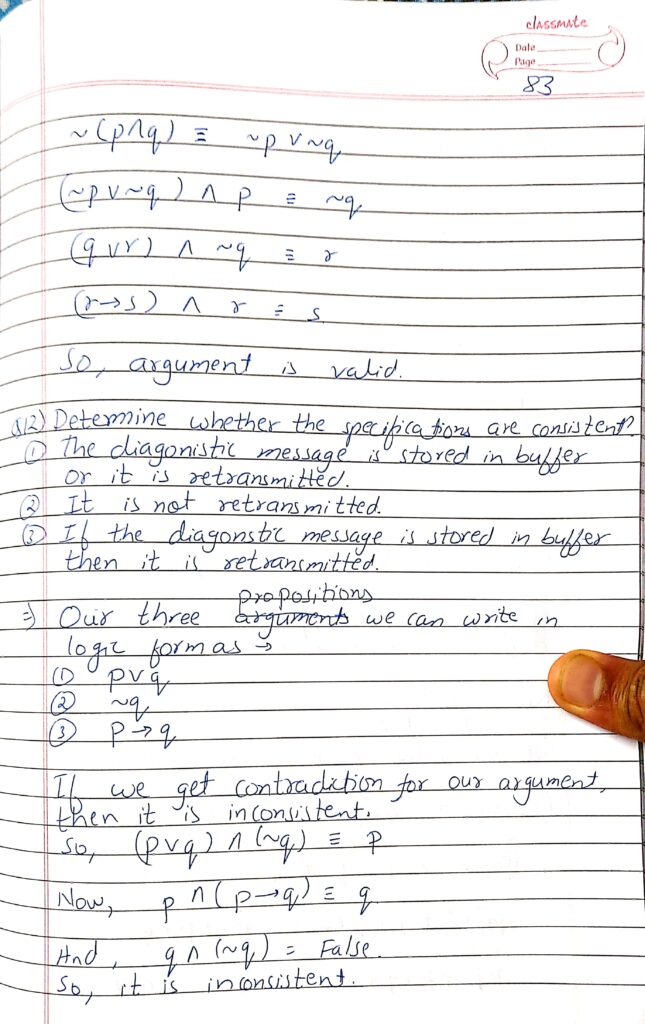 classmate
Date
Page
83
~(p∧q) ≡ ~p ∨ ~q
(~p ∨ ~q) ∧ p ≡ ~q
(q ∨ r) ∧ ~q ≡ r
(r→s) ∧ r ≡ s
So, argument is valid.
Q12) Determine whether the specifications are consistent?
① The diagonistic message is stored in buffer
or it is retransmitted.
② It is not retransmitted.
③ If the diagonstic message is stored in buffer
then it is retransmitted.
propositions
⇒ Our three arguments we can write in
logic form as →
① p∨q
② ~q
③ p→q
If we get contradiction for our argument,
then it is inconsistent.
So, (p∨q) ∧ (~q) ≡ p
Now, p ∧ (p→q) ≡ q
And, q ∧ (~q) = False.
So, it is inconsistent.